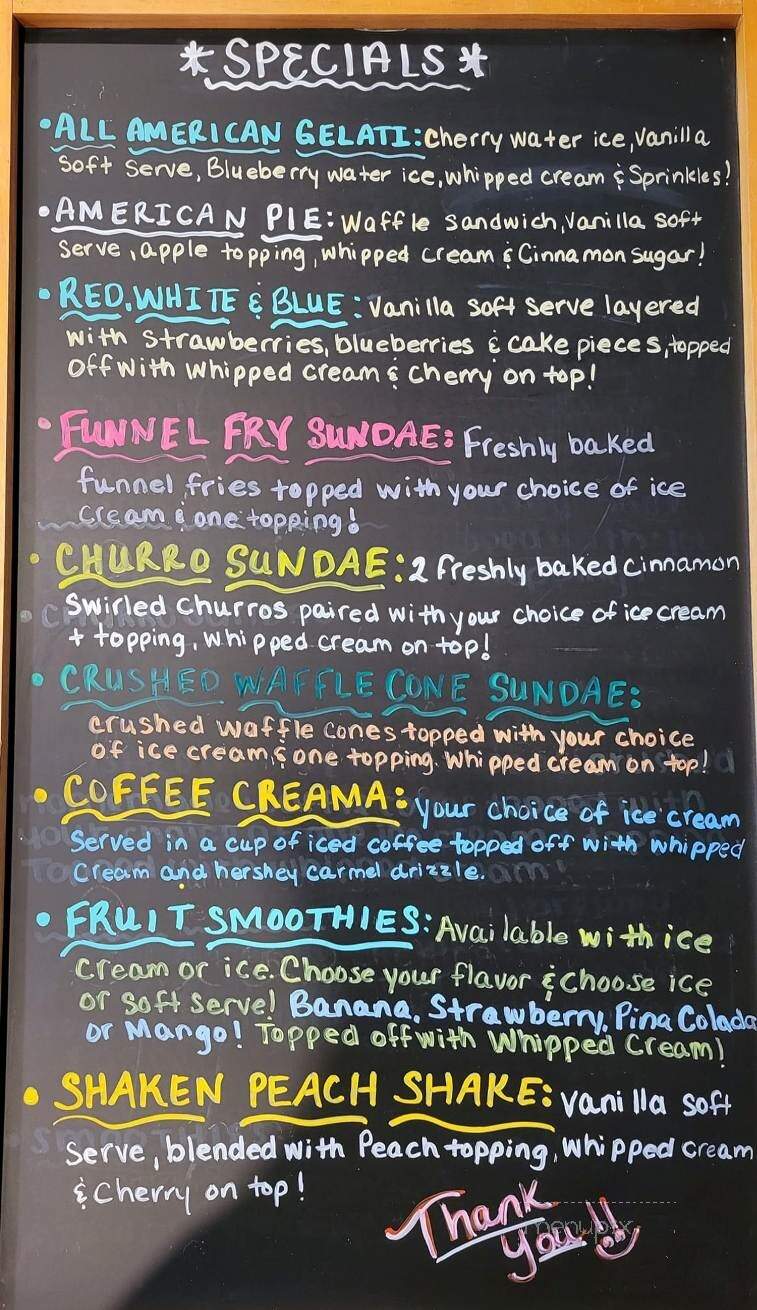 *SPECIALS*
•ALL AMERICAN GELATI: Cherry water ice, Vanilla
Soft Serve, Blueberry water ice, whipped cream & Sprinkles!
•AMERICAN PIE: Waffle Sandwich, Vanilla Soft
Serve, apple topping, whipped cream & Cinnamon Sugar!
•RED, WHITE & BLUE: Vanilla Soft Serve layered
with Strawberries, blueberries & cake pieces, topped
Off with whipped cream & Cherry on top!
•FUNNEL FRY SUNDAE: Freshly baked
funnel fries topped with your choice of ice
cream & one topping!
•CHURRO SUNDAE: 2 freshly baked Cinnamon
Swirled Churros paired with your choice of ice cream
+ topping, whipped cream on top!
•CRUSHED WAFFLE CONE SUNDAE:
crushed waffle cones topped with your choice
of ice cream & one topping. Whipped cream on top!
•COFFEE CREAMA: your choice of ice cream
Served in a cup of iced coffee topped off with whipped
Cream and hershey carmel drizzle.
•FRUIT SMOOTHIES: Available with ice
Cream or ice. Choose your flavor & choose ice
or soft serve! Banana, Strawberry, Pina Colada
or Mango! Topped off with Whipped Cream!
•SHAKEN PEACH SHAKE: Vanilla soft
Serve, blended with Peach topping, whipped cream
& Cherry on top!
Thank
You!!
menupix